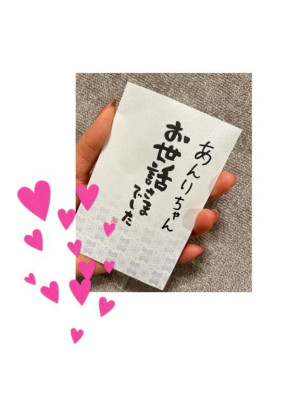 あんりちゃん
お世話さま
でした